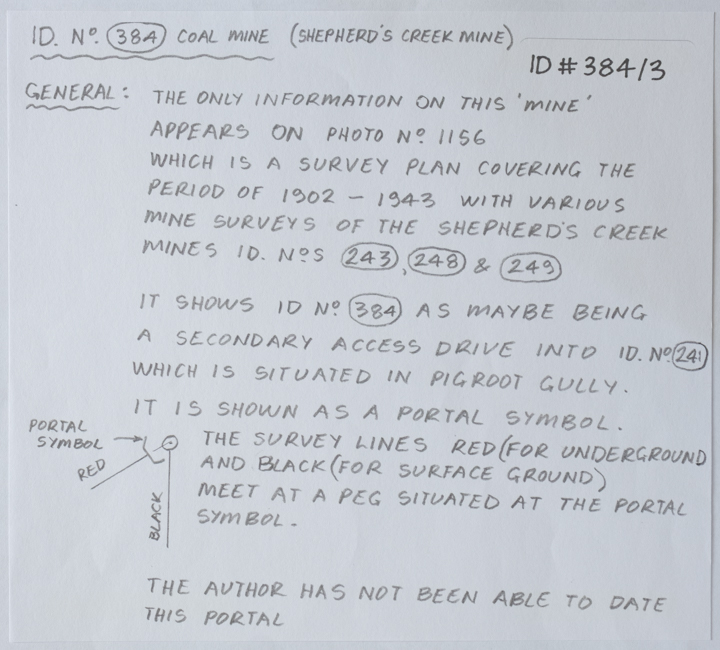 ID. Nº. 384 COAL MINE (SHEPHERD'S CREEK MINE)
ID # 384/3
GENERAL: THE ONLY INFORMATION ON THIS 'MINE'
APPEARS ON PHOTO Nº 1156
WHICH IS A SURVEY PLAN COVERING THE
PERIOD OF 1902 - 1943 WITH VARIOUS
MINE SURVEYS OF THE SHEPHERD'S CREEK
MINES ID. NºS 243, 248 & 249
IT SHOWS ID Nº 384 AS MAYBE BEING
A SECONDARY ACCESS DRIVE INTO ID. Nº 241
WHICH IS SITUATED IN PIGROOT GULLY.
IT IS SHOWN AS A PORTAL SYMBOL.
PORTAL
SYMBOL
RED
BLACK
THE SURVEY LINES RED (FOR UNDERGROUND
AND BLACK (FOR SURFACE GROUND)
MEET AT A PEG SITUATED AT THE PORTAL
SYMBOL.
THE AUTHOR HAS NOT BEEN ABLE TO DATE
THIS PORTAL